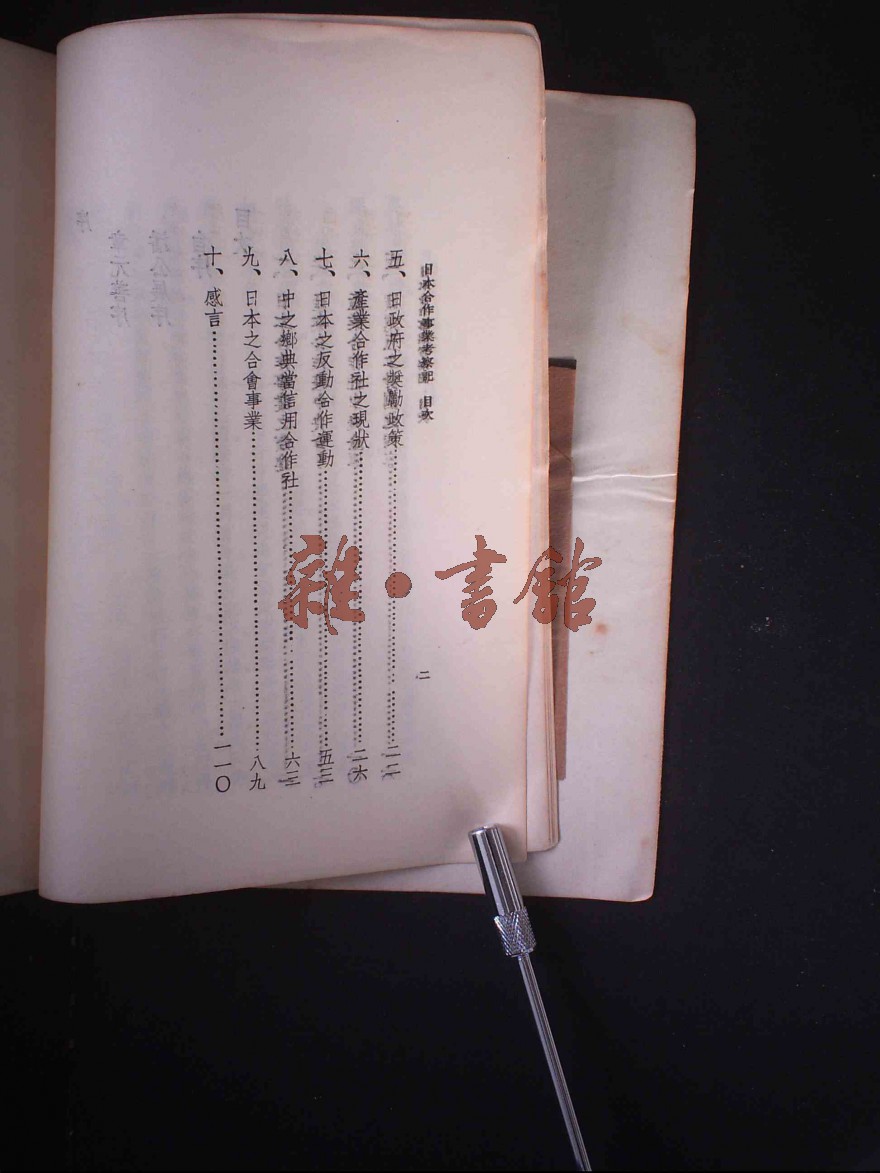 日本合作事業考察記 目次
二
五、日政府之獎勵政策……二二
六、產業合作社之現狀……二六
七、日本之反動合作運動……五三
八、中之鄉典當信用合作社……六三
九、日本之合會事業……八九
十、感言……一一〇
雜·書館